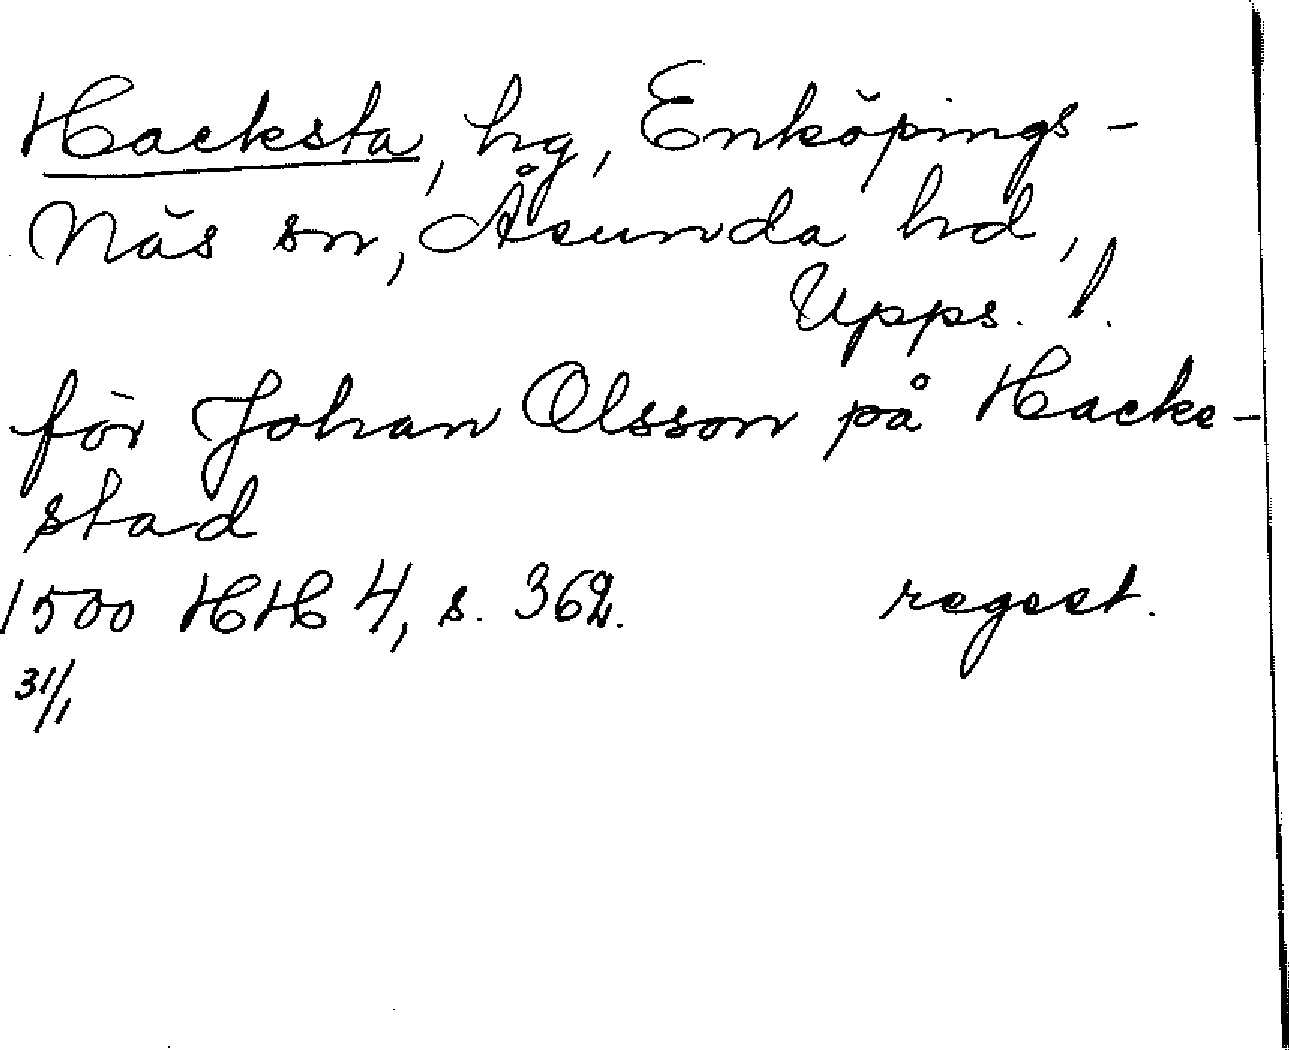 Hacksta, hg, Enköpings-
Näs sn, Åsunda hd,
Upps. l.
för Johan Olsson på Hacke-
stad
1500 HH 4, s. 362. regest.
31/1